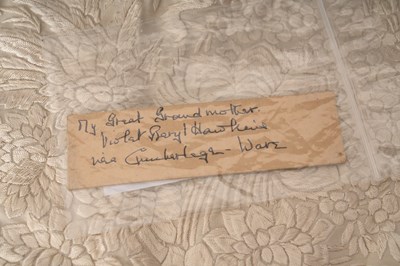 My Great Grandmother.
Violet Beryl Hawkins
née Cumberlege - Ware